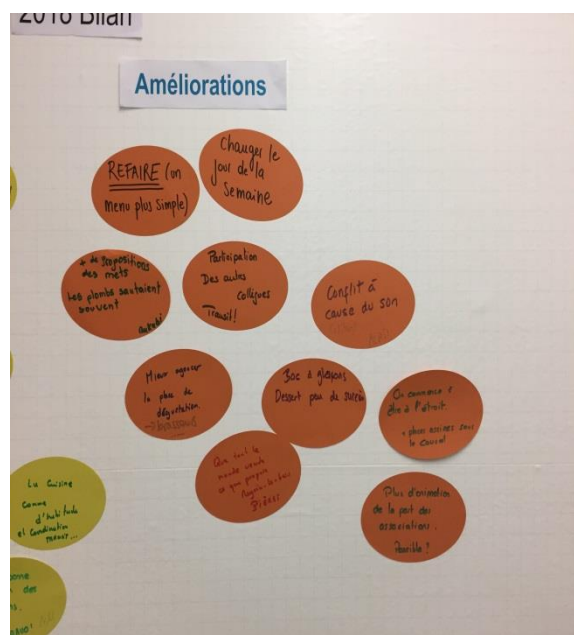 2016 Bilan
Améliorations
REFAIRE (un
menu plus simple)
Changer le
jour de la
Semaine
+ de propositions
des mets
Les plombs sautaient
souvent
Participation
Des autres
collègues
Transit!
Conflit à
cause du son
Mieux agencer
la place de
dégustation.
Bac à glaçons
Dessert peu de
On commence à
être à l'étroit.
+ places assises sous
le
Que tout le
monde
ce que propose
Bières
Plus d'animation
de la part des
associations.
Possible?
La Cuisine
comme
d'habitude
et Coordination
des